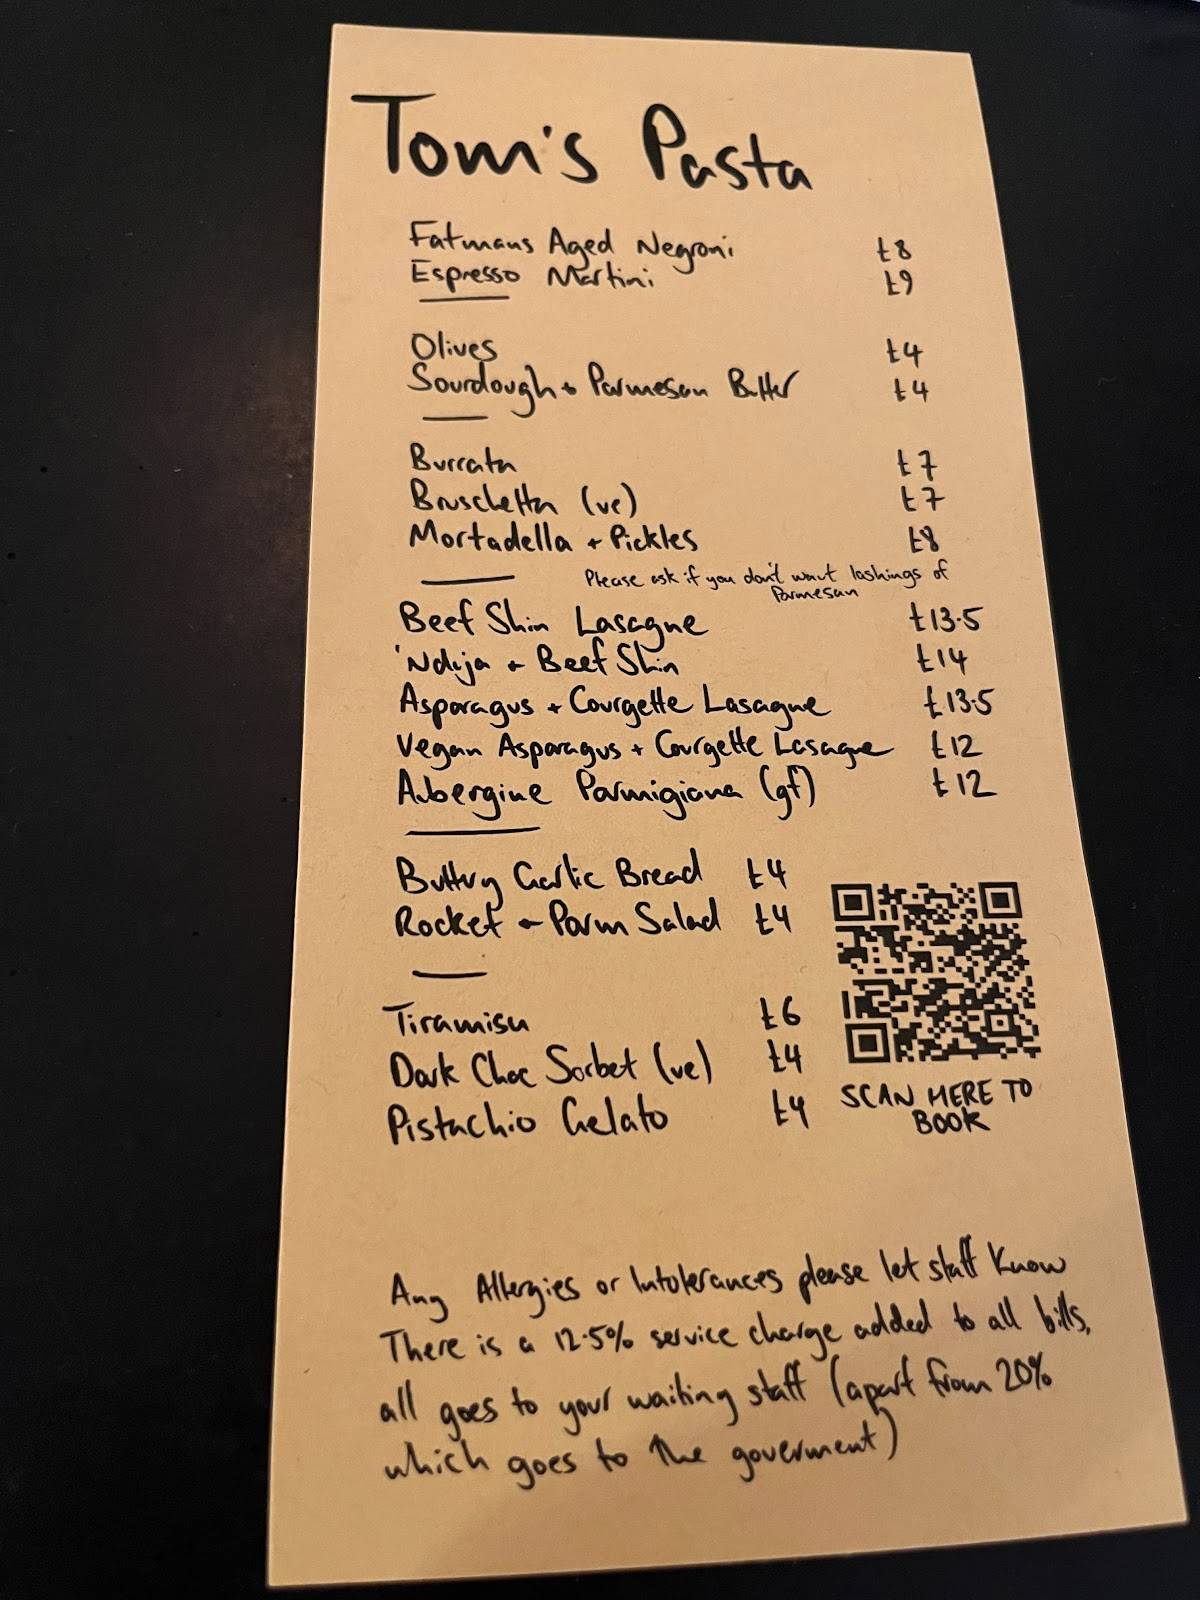 Tom's Pasta
Fatmans Aged Negroni £8
Espresso Martini £9
Olives £4
Sourdough + Parmesan Butter £4
Burrata £7
Bruschetta (ve) £7
Mortadella + Pickles £8
Please ask if you don't want lashings of
Parmesan
Beef Shin Lasagne £13.5
'Nduja + Beef Shin £14
Asparagus + Courgette Lasagne £13.5
Vegan Asparagus + Courgette Lasagne £12
Aubergine Parmigiana (gf) £12
Buttery Garlic Bread £4
Rocket + Parm Salad £4
Tiramisu £6
Dark Choc Sorbet (ve) £4
Pistachio Gelato £4
SCAN HERE TO
BOOK
Any Allergies or Intolerances please let staff know
There is a 12.5% service charge added to all bills,
all goes to your waiting staff (apart from 20%
which goes to the goverment)